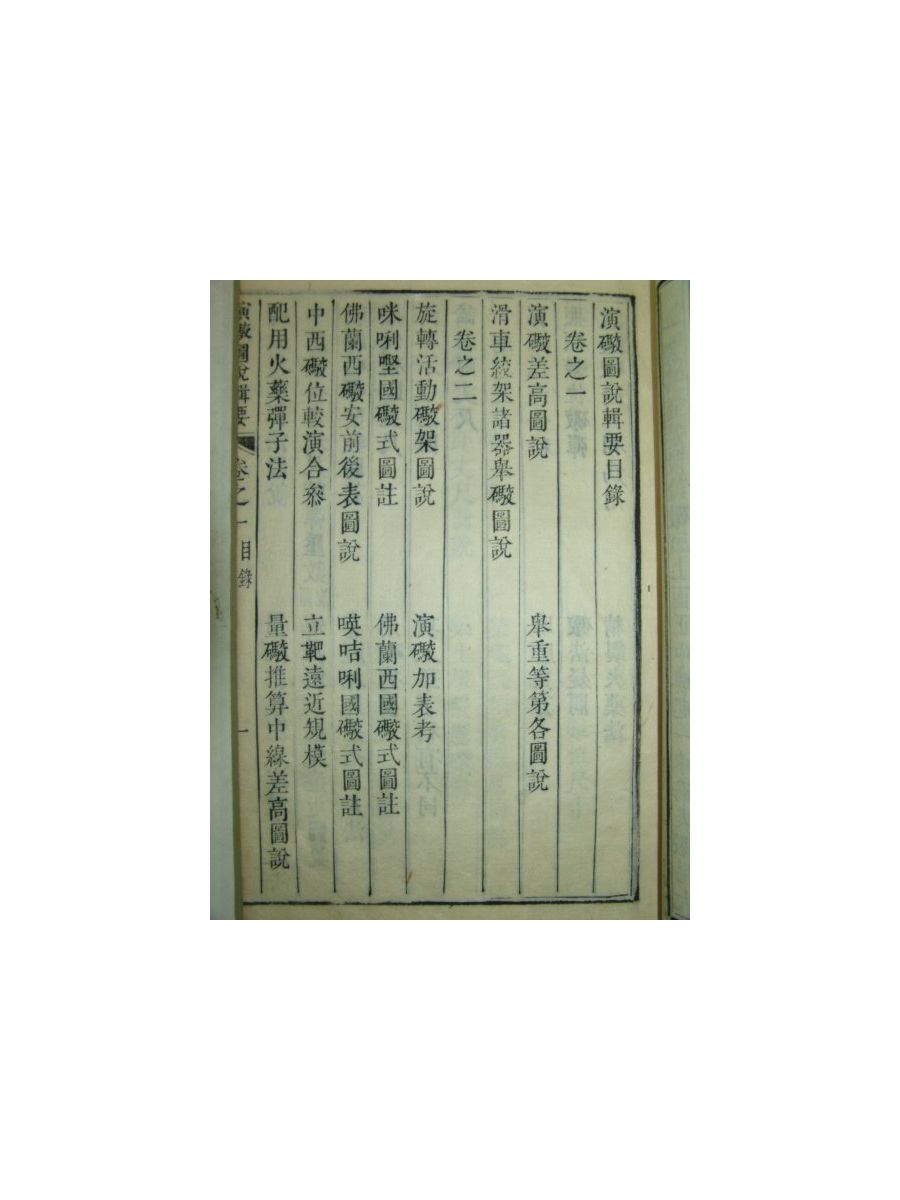 演礮圖說輯要目錄
卷之一
演礮差高圖說
舉重等第各圖說
滑車絞架諸器舉礮圖說
卷之二
旋轉活動礮架圖說
演礮加表考
咪唎堅國礮式圖註
佛蘭西國礮式圖註
佛蘭西礮安前後表圖說
㖛咭唎國礮式圖註
中西礮位較演合叅
立靶遠近規模
配用火藥彈子法
量礮推算中線差高圖說
演礮圖說輯要
卷之一
目錄
一